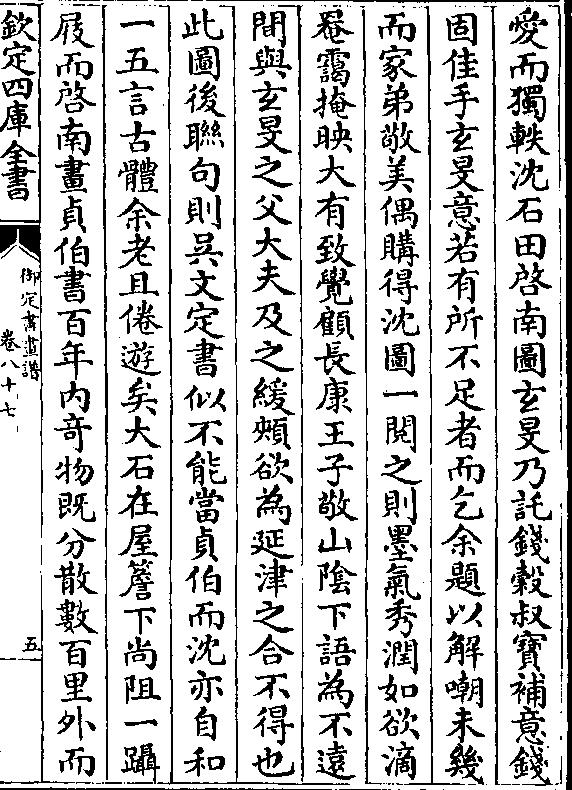 愛而獨軼沈石田啓南圖玄旻乃託錢穀叔寶補意錢
固佳手玄旻意若有所不足者而乞余題以解嘲未幾
而家弟敬美偶購得沈圖一閱之則墨氣秀潤如欲滴
罨靄掩映大有致覺顧長康王子敬山陰下語為不遠
間與玄旻之父大夫及之緩頰欲為延津之合不得也
此圖後聯句則吳文定書似不能當貞伯而沈亦自和
一五言古體余老且倦遊矣大石在屋簷下尚阻一躡
屐而啓南畫貞伯書百年内竒物既分散數百里外而
欽定四庫全書
御定書畫譜
卷八十七
五